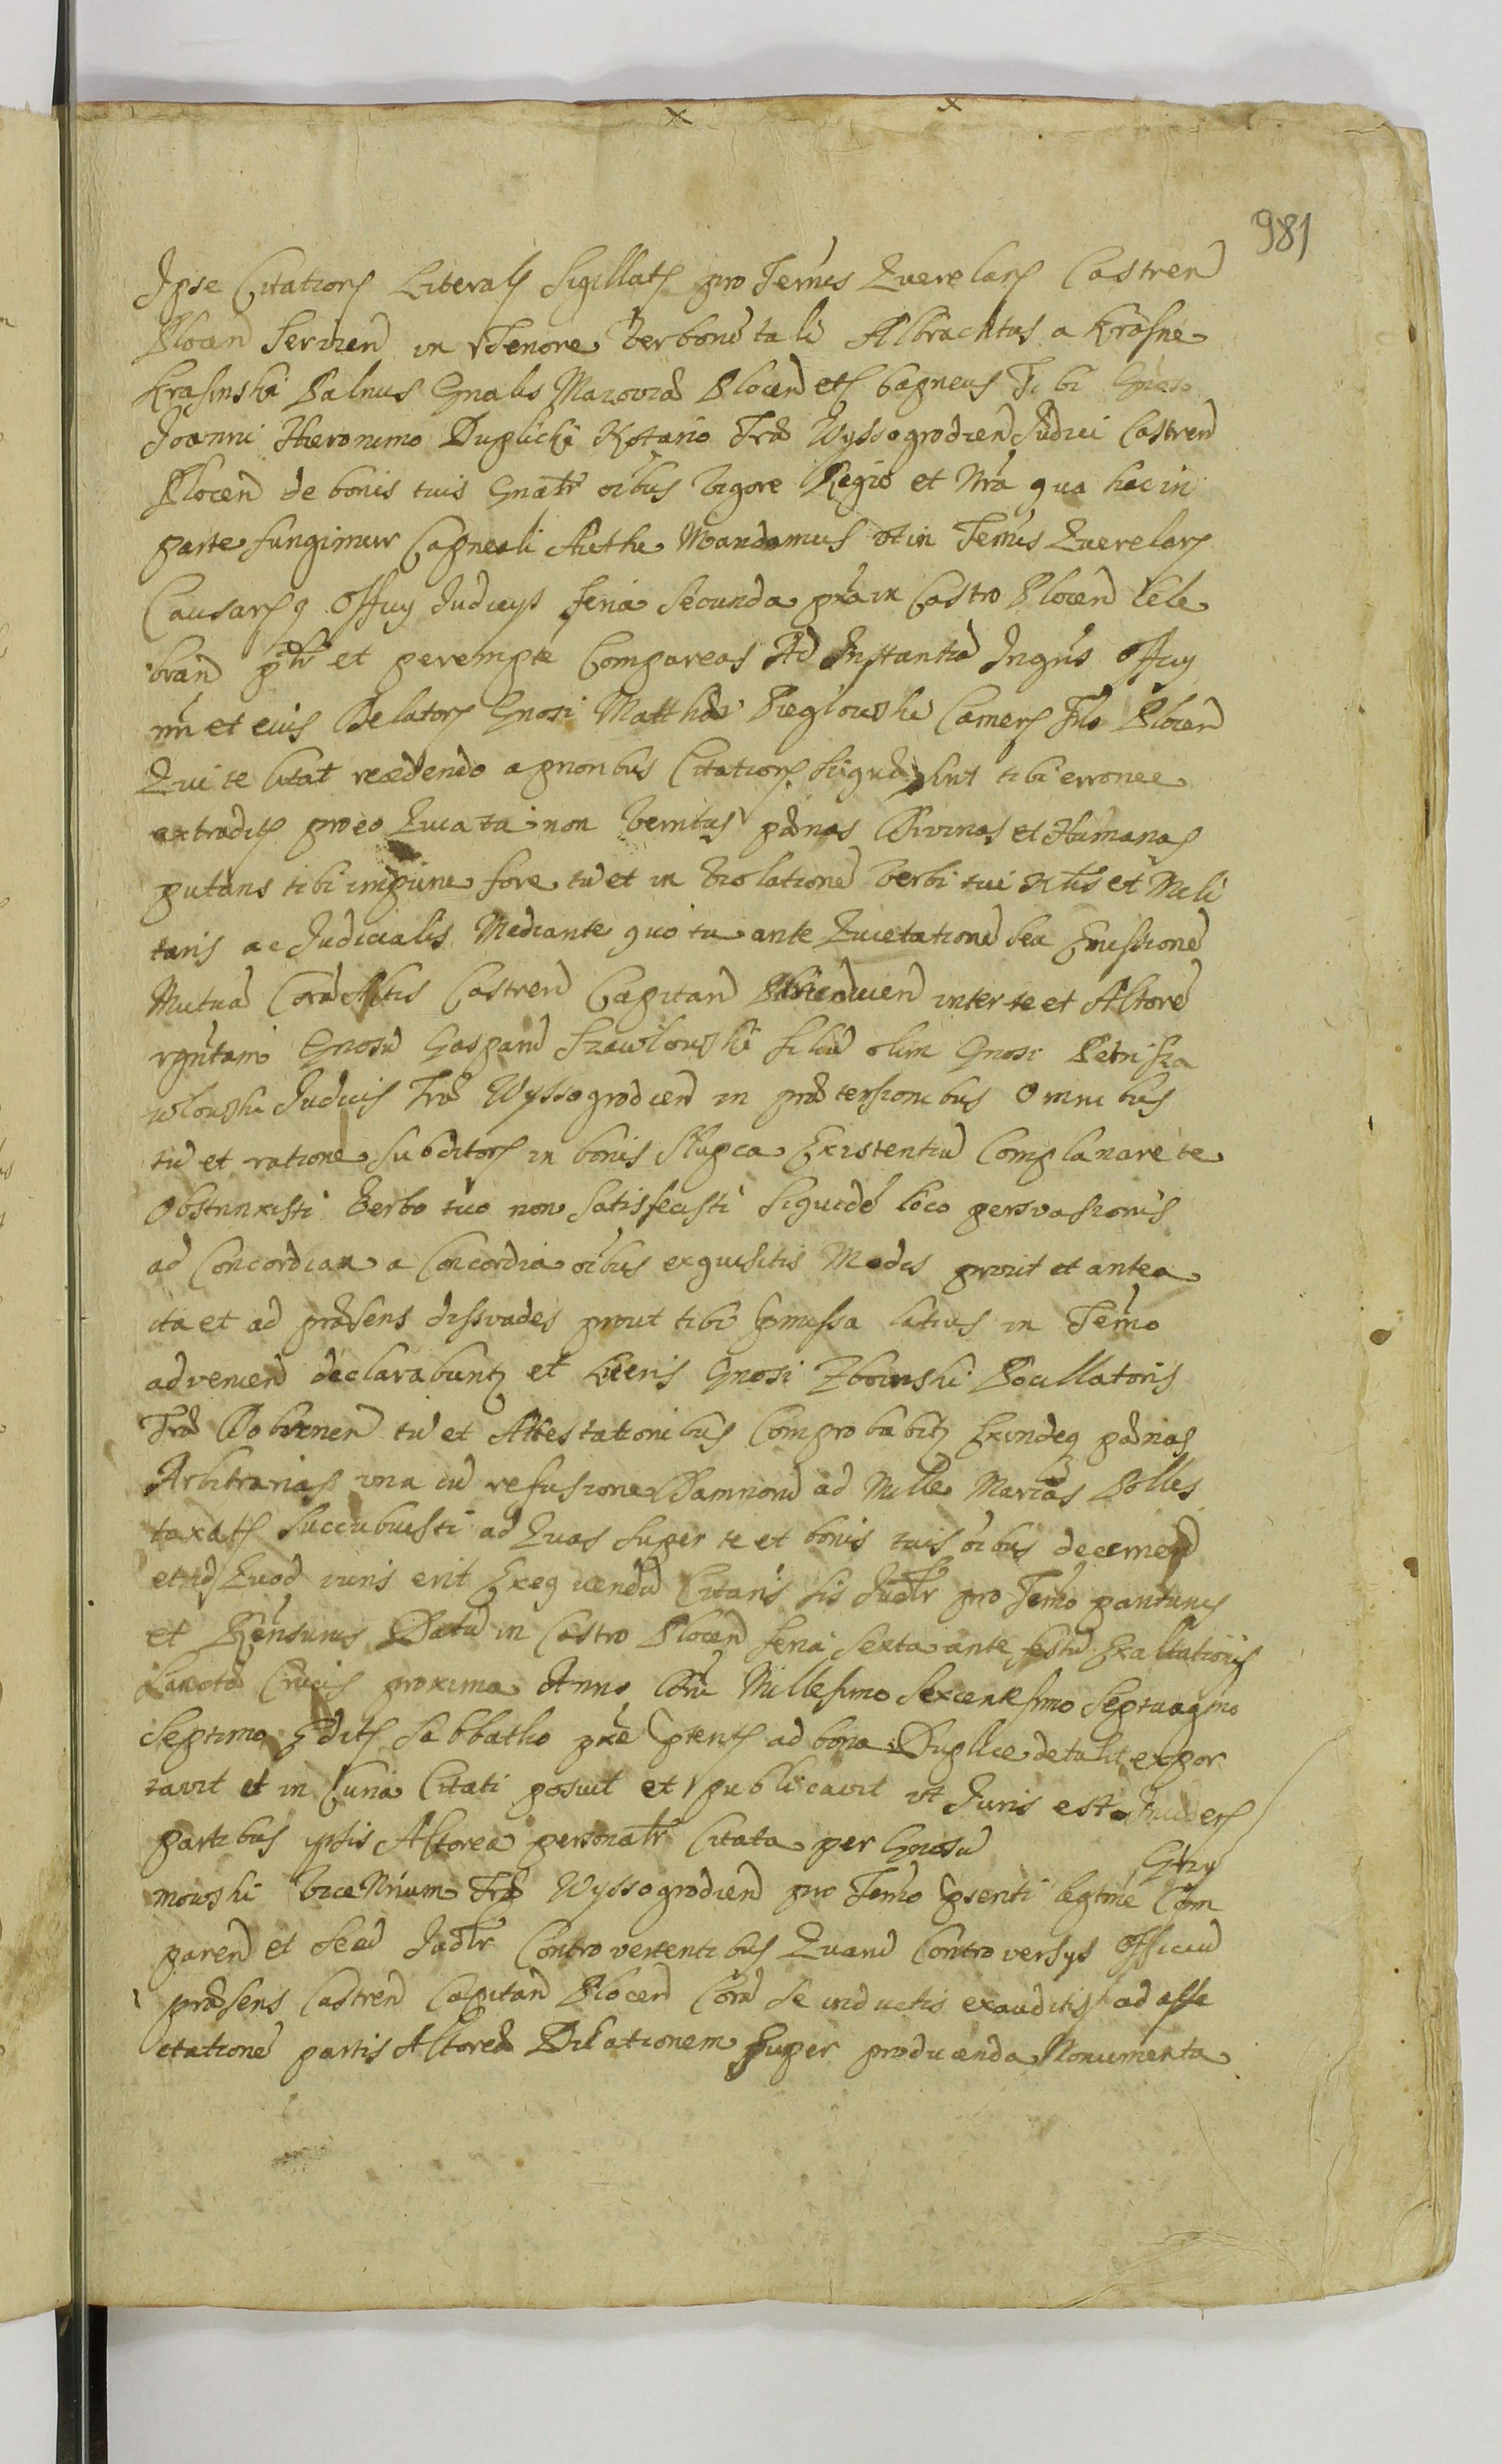 981
Ipse Citationis Literalis Sigillatis pro Ternis Querelaris Castren
Plocen Servien in Tenore verborum tali Albrachtus a Krasne
Krasinski Palnus Gnalis Mazoviæ Plocen etc Capneus Tibi Gnoso
Joanni Hieronimo Duplicki Notario Træ Wyssogrodien Judici Castren
Plocen de bonis tuis Gnatr oibus vigore Regio et Nra qua hac in
parte fungimur Capneali Authe Mandamus vt in Ternis Querelaris
Causarq Officy Judicys feria Secunda pxa in Castro Plocen Cele
bran ptr et perempte Compareas Ad Instantia Ingnis Officy
nri et eius Delatoris Gnosi Matthæi Pieglowski Cameris Træ Plocen
Qui te Citat recedendo a prioribus Citationis siqu sunt tibi erronee
extraditis pro eo Quia ta non veritus pænas Divinas et Humanas
putans tibi impune fore tu et in violatione verbi tui Nlis et Mili
taris ac Judicialis Mediante quo tu ante Quietatione seu Emissione
Mutua Cora Actis Castren Capitan inter te et Actore
Gnosu Gaspare Szawlowski filiu olim Gnosi Petri Sza
wlowski Judicis Træ Wyssogrodien in prætensionibus Omnibus
tu et ratione Subditoris in bonis Slupca Existentiu Complanare te
Obstrinxisti verbo tuo non Satisfecisti Siquide loco persvasionis
ad Concordiam a Concordia oibus exquisitis Modis prout et antea
ita et ad præsens dissvades prout tibi præmissa latius in Terno
advenien declarabuntr et Literis Gnosi Zboinski Pocillatoris
Træ Dobrinen tu et Attestationibus Comprobabitr Exindeq pænas
Arbitrarias una cu refusione Damnoru ad Mille Marcas Polles
taxatis Succubuisti ad Quas super te et bonis tuis oibus decernen
et id Quod iuris erit Exequendu Citaris sis Judlr pro Terno parituris
et Rensuris Datu in Castro Plocen feria Sexta ante festu Exaltationis
Sanctæ Crucis proxima Anno Dni Millesimo Sexcentesimo Septuagmo
Septimo Editis Sabbatho pxe ptentis ad bona Duplice detulit expor
tavit et in Curia Citati posuit et publicavit vt Juris est
partibus ipsis Actorea personalr Citata per Gnosu Grzy
mowski viceNrium Træ Wyssogrodien pro Terno præsenti legtme Com
paren et Secu Jadlr Controvertentibus Quaru Controversys Officiu
præsens Castren Capitan Plocen Cora se inductis exauditis ad affe
ctatione partis Actoreæ Dilationem super producenda Monumenta